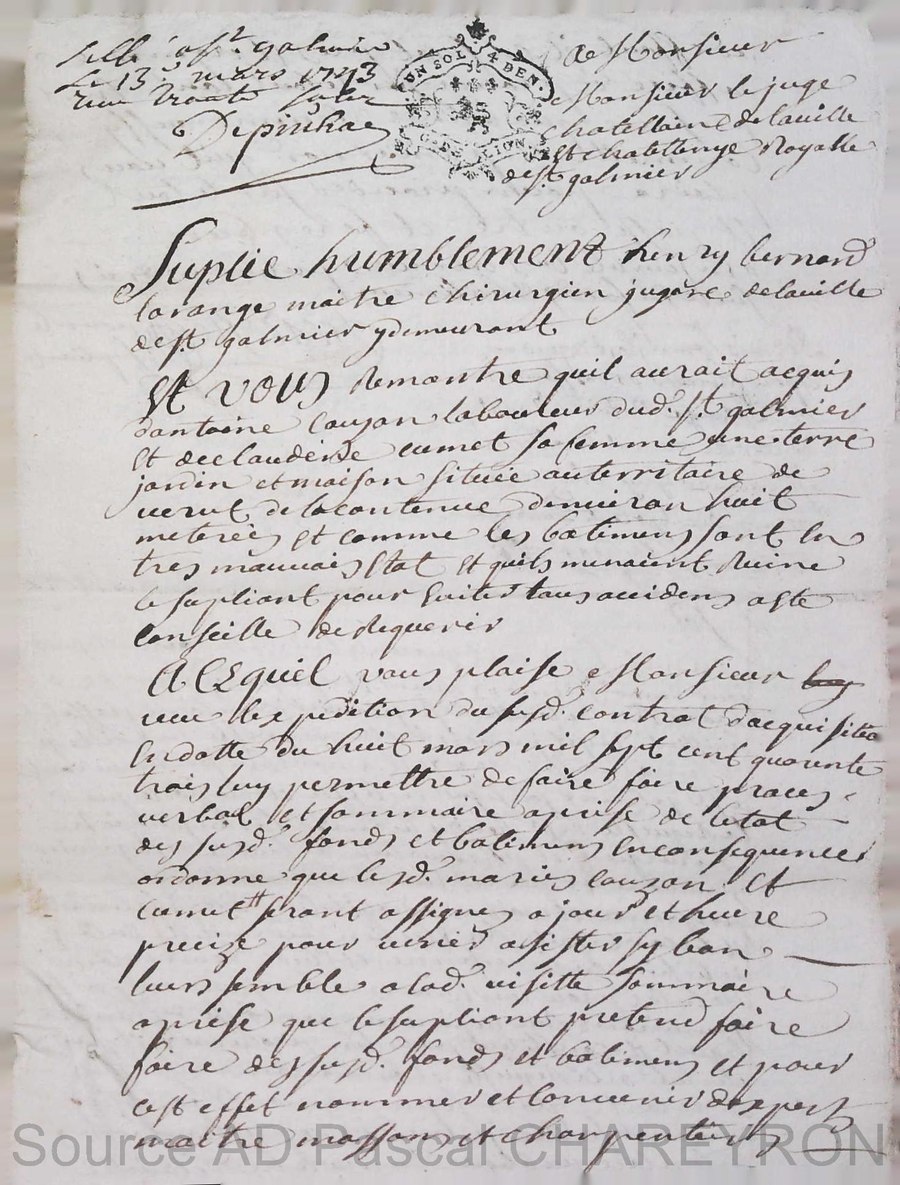 a St galmier
Le 13e mars 1743
Depinhac
UN SOL 4 DEN.
LION
a Monsieur
Monsieur le juge
chatellain de laville
Et chatellenye Royalle
de St. galmier
Suplie humblement henry bernard
larange maitre chirurgien juré delaville
de St. galmier y demeurant
Et vous Remontre quil aurait acquis
dantoine couzon laboureur dud. St. galmier
Et de claudine cumet sa femme une terre
jardin et maison Située auterritoire de
verut de la contenue denviron huit
meterées Et comme les batimens sont En
tres mauvais Etat Et quils menacent Ruine
le supliant pour Eviter tous accidens a Eté
Conseillé de Requerir
A CEquil vous plaise Monsieur
veu lexpedition du susd. contrat dacquisition
En datte du huit mars mil sept cent quarente
trois luy permettre de faire faire proces
verbal et sommaire aprise de letat
des susd. fonds et batimens En consequence
ordonne que lesd. mariés couzon Et
cumet seront assignes a jour et heure
precize pour venir asister sy bon
leurs semble a lad. visitte sommaire
aprise que le supliant pretend faire
faire des susd. fonds et batimens et pour
cest effet nommer et convenir dexperts
maitre masson et charpentier
Source AD Pascal CHAREYRON